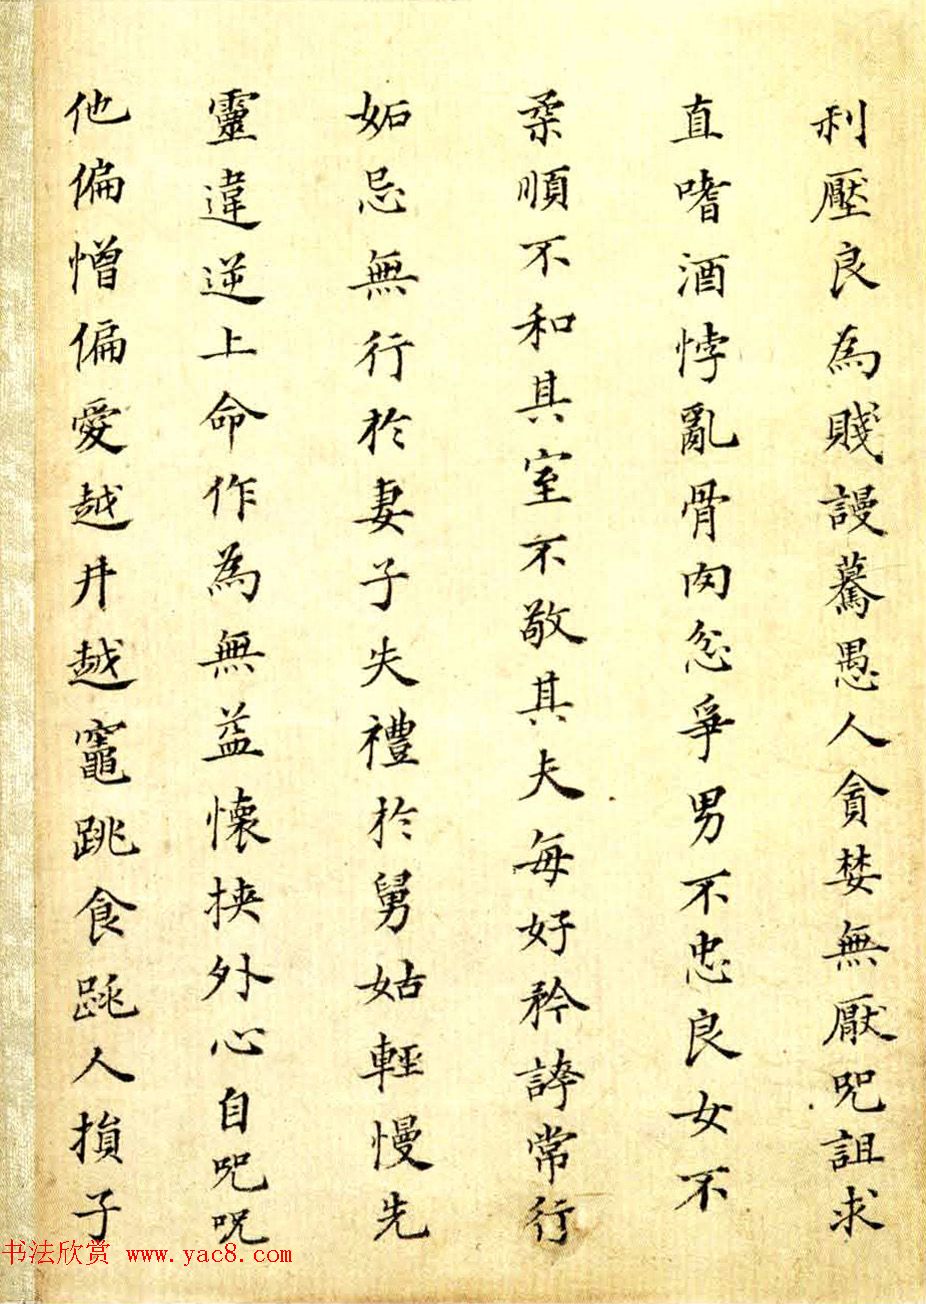 利壓良為賤謾驀愚人貪婪無厭咒詛求
直嗜酒悖亂骨肉忿爭男不忠良女不
柔順不和其室不敬其夫每好矜誇常行
妬忌無行於妻子失禮於舅姑輕慢先
靈違逆上命作為無益懷挾外心自咒咒
他偏憎偏愛越井越竈跳食跳人損子
书法欣赏 www.yac8.com